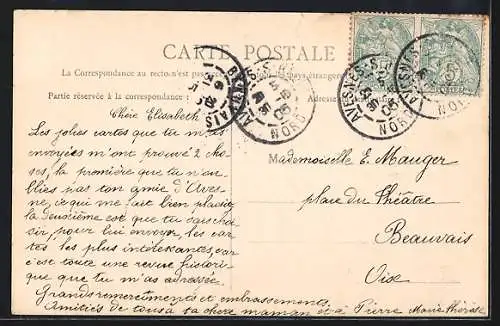 CARTE POSTALE
La Correspondance au recto n'est pas pays étrangers
Partie réservée à la correspondance Adresse
AVESNES NORD
Chère Elisabeth
Les jolies cartes que tu m'as
envoyées m'ont procuré 2 cho-
ses, la première que tu n'ou-
blies pas ton amie d'Aves-
ne, ce qui me fait bien plaisir,
la deuxième est que tu sais choi-
sir, pour lui envoyer les car-
tes les plus intéressantes, car
c'est toute une revue histori-
que que tu m'as adressée.
Grands remerciements et embrassements.
Amitiés de tous à ta chère maman et à Pierre Marie Thérèse
Mademoiselle E. Mauger
place du Théâtre
Beauvais
Oise